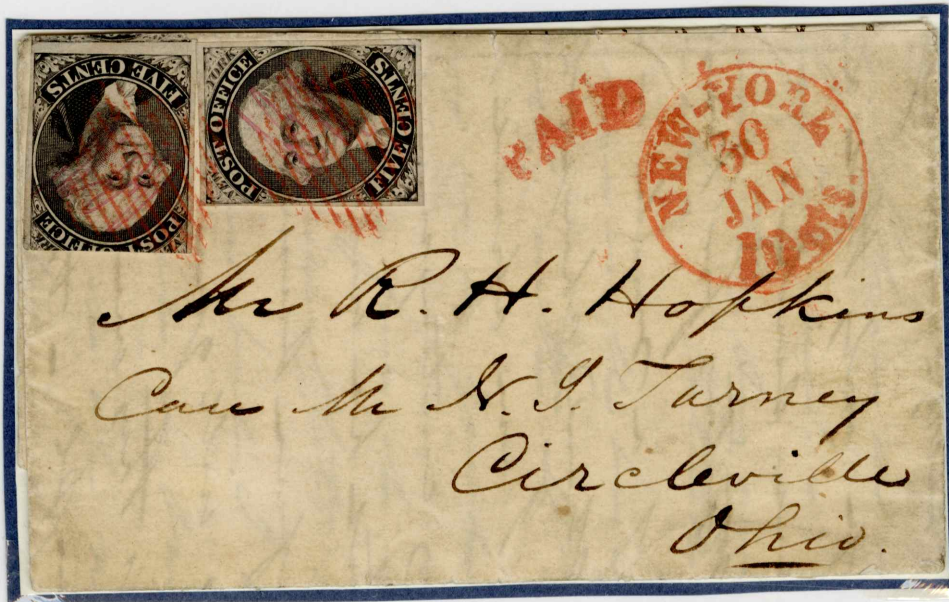 POST OFFICE
FIVE CENTS
POST OFFICE
FIVE CENTS
PAID
NEW-YORK
30
JAN
10 cts
Mr R. H. Hopkins
Care Mr N. J. Turney
Circleville
Ohio.